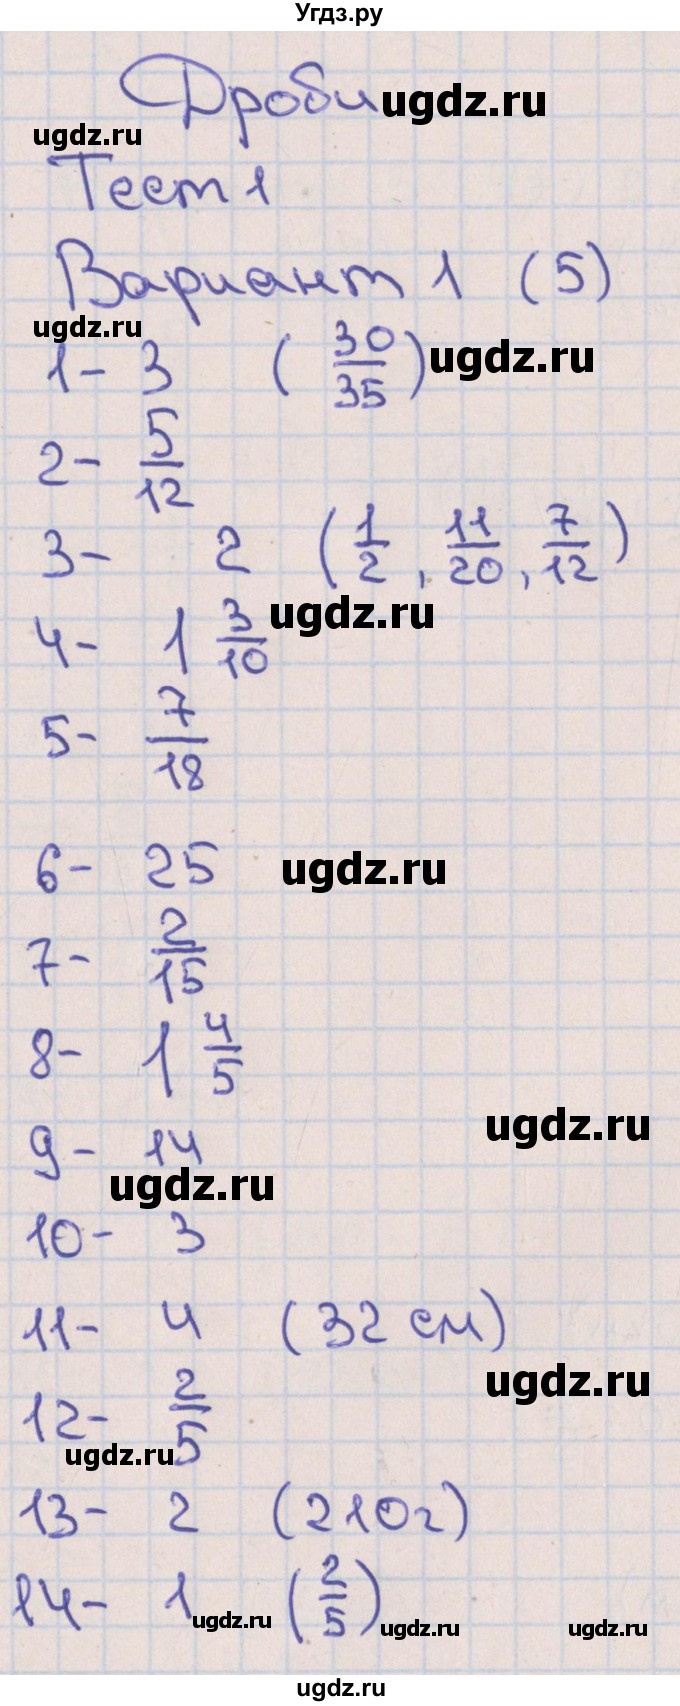 Угдз.ру
Дроби ugdz.ru
ugdz.ru
Тест 1
Вариант 1 (5)
ugdz.ru
1- 3 (30/35) ugdz.ru
2- 5/12
3- 2 (1/2, 11/20, 7/12)
ugdz.ru
4- 1 3/10
5- 7/18
6- 25 ugdz.ru
7- 2/15
8- 1 4/5
ugdz.ru
9- 14
ugdz.ru
10- 3
11- 4 (32 см)
ugdz.ru
12- 2/5
ugdz.ru
13- 2 (210г)
14- 1 (2/5)
ugdz.ru ugdz.ru ugdz.ru
ugdz.ru